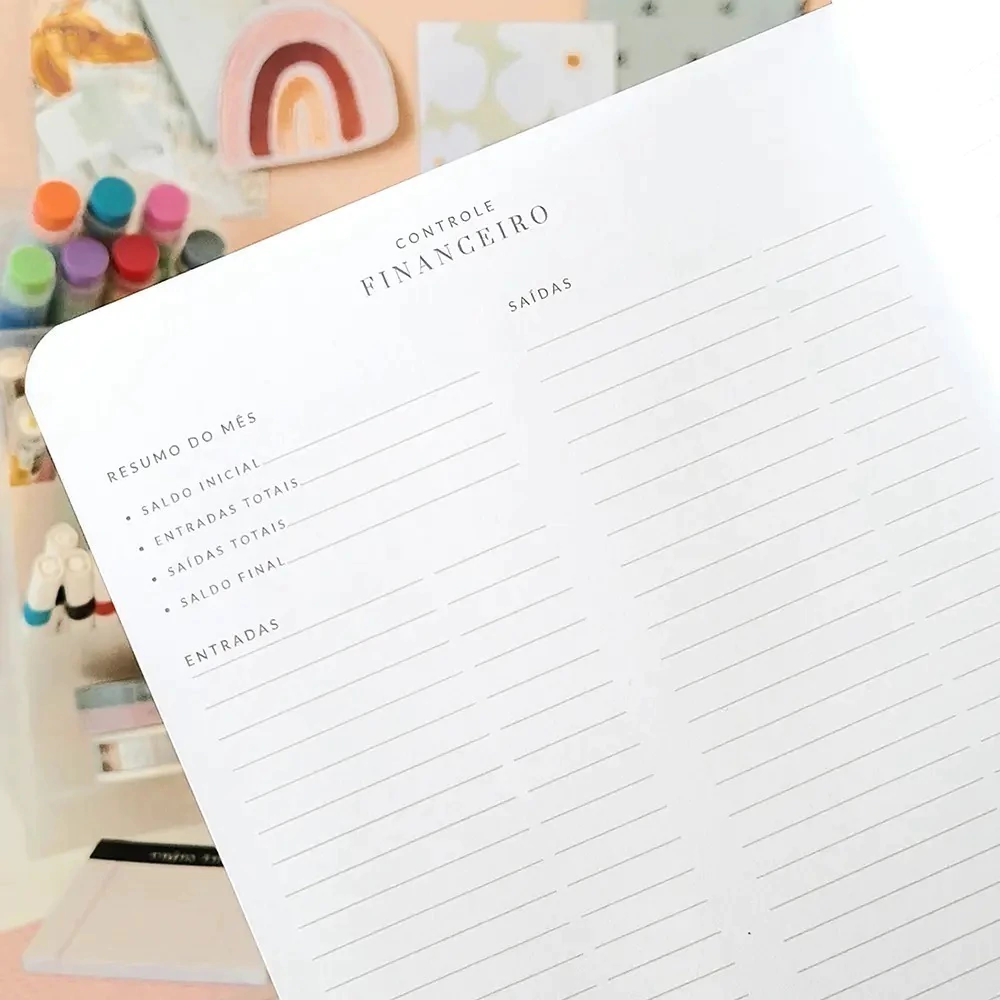 CONTROLE
FINANCEIRO
RESUMO DO MÊS
• SALDO INICIAL
• ENTRADAS TOTAIS
• SAÍDAS TOTAIS
• SALDO FINAL
ENTRADAS
SAÍDAS